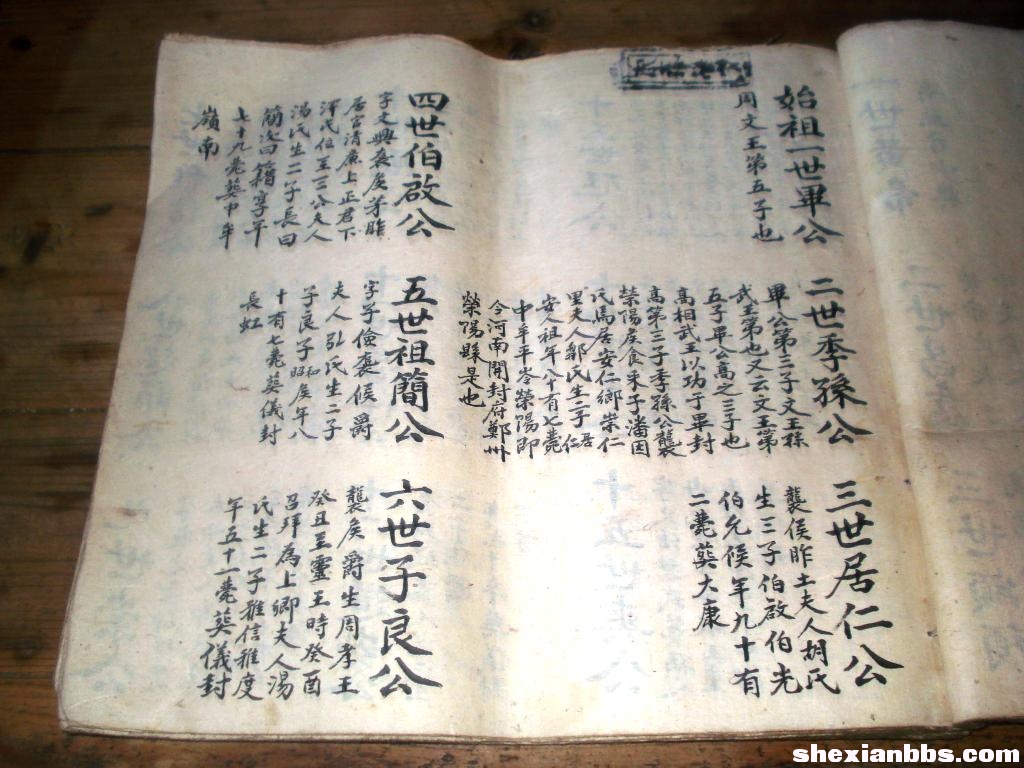 始祖一世畢公
周文王第五子也
二世季孫公
畢公第三子文王孫
武王第也又云文王第
五子畢公高之三子也
高相武王以功于畢封
高第三子季孫公襲
榮陽侯食采于潘因
氏焉居安仁鄉崇仁
里夫人鄭氏生一子居仁
安人祖年八十有七薨
中牟平岺榮陽即
今河南開封府鄭州
榮陽縣是也
三世居仁公
襲侯昨土夫人胡氏
生三子伯啟伯光
伯允候年九十有
二薨葬大康
四世伯啟公
字文興襲侯茅昨
居官清廉上正君下
澤民位至三公夫人
湯氏生二子長曰
簡次曰籍享年
七十九薨葬中牟
嶺南
五世祖簡公
字子儉襲侯爵
夫人弘氏生二子
子良子和昭侯年八
十有七薨葬儀封
長虹
六世子良公
襲侯爵生周孝王
癸丑至靈王時癸酉
召拜為上卿夫人湯
氏生二子雅信雅度
年五十一薨葬儀封
shexianbbs.com